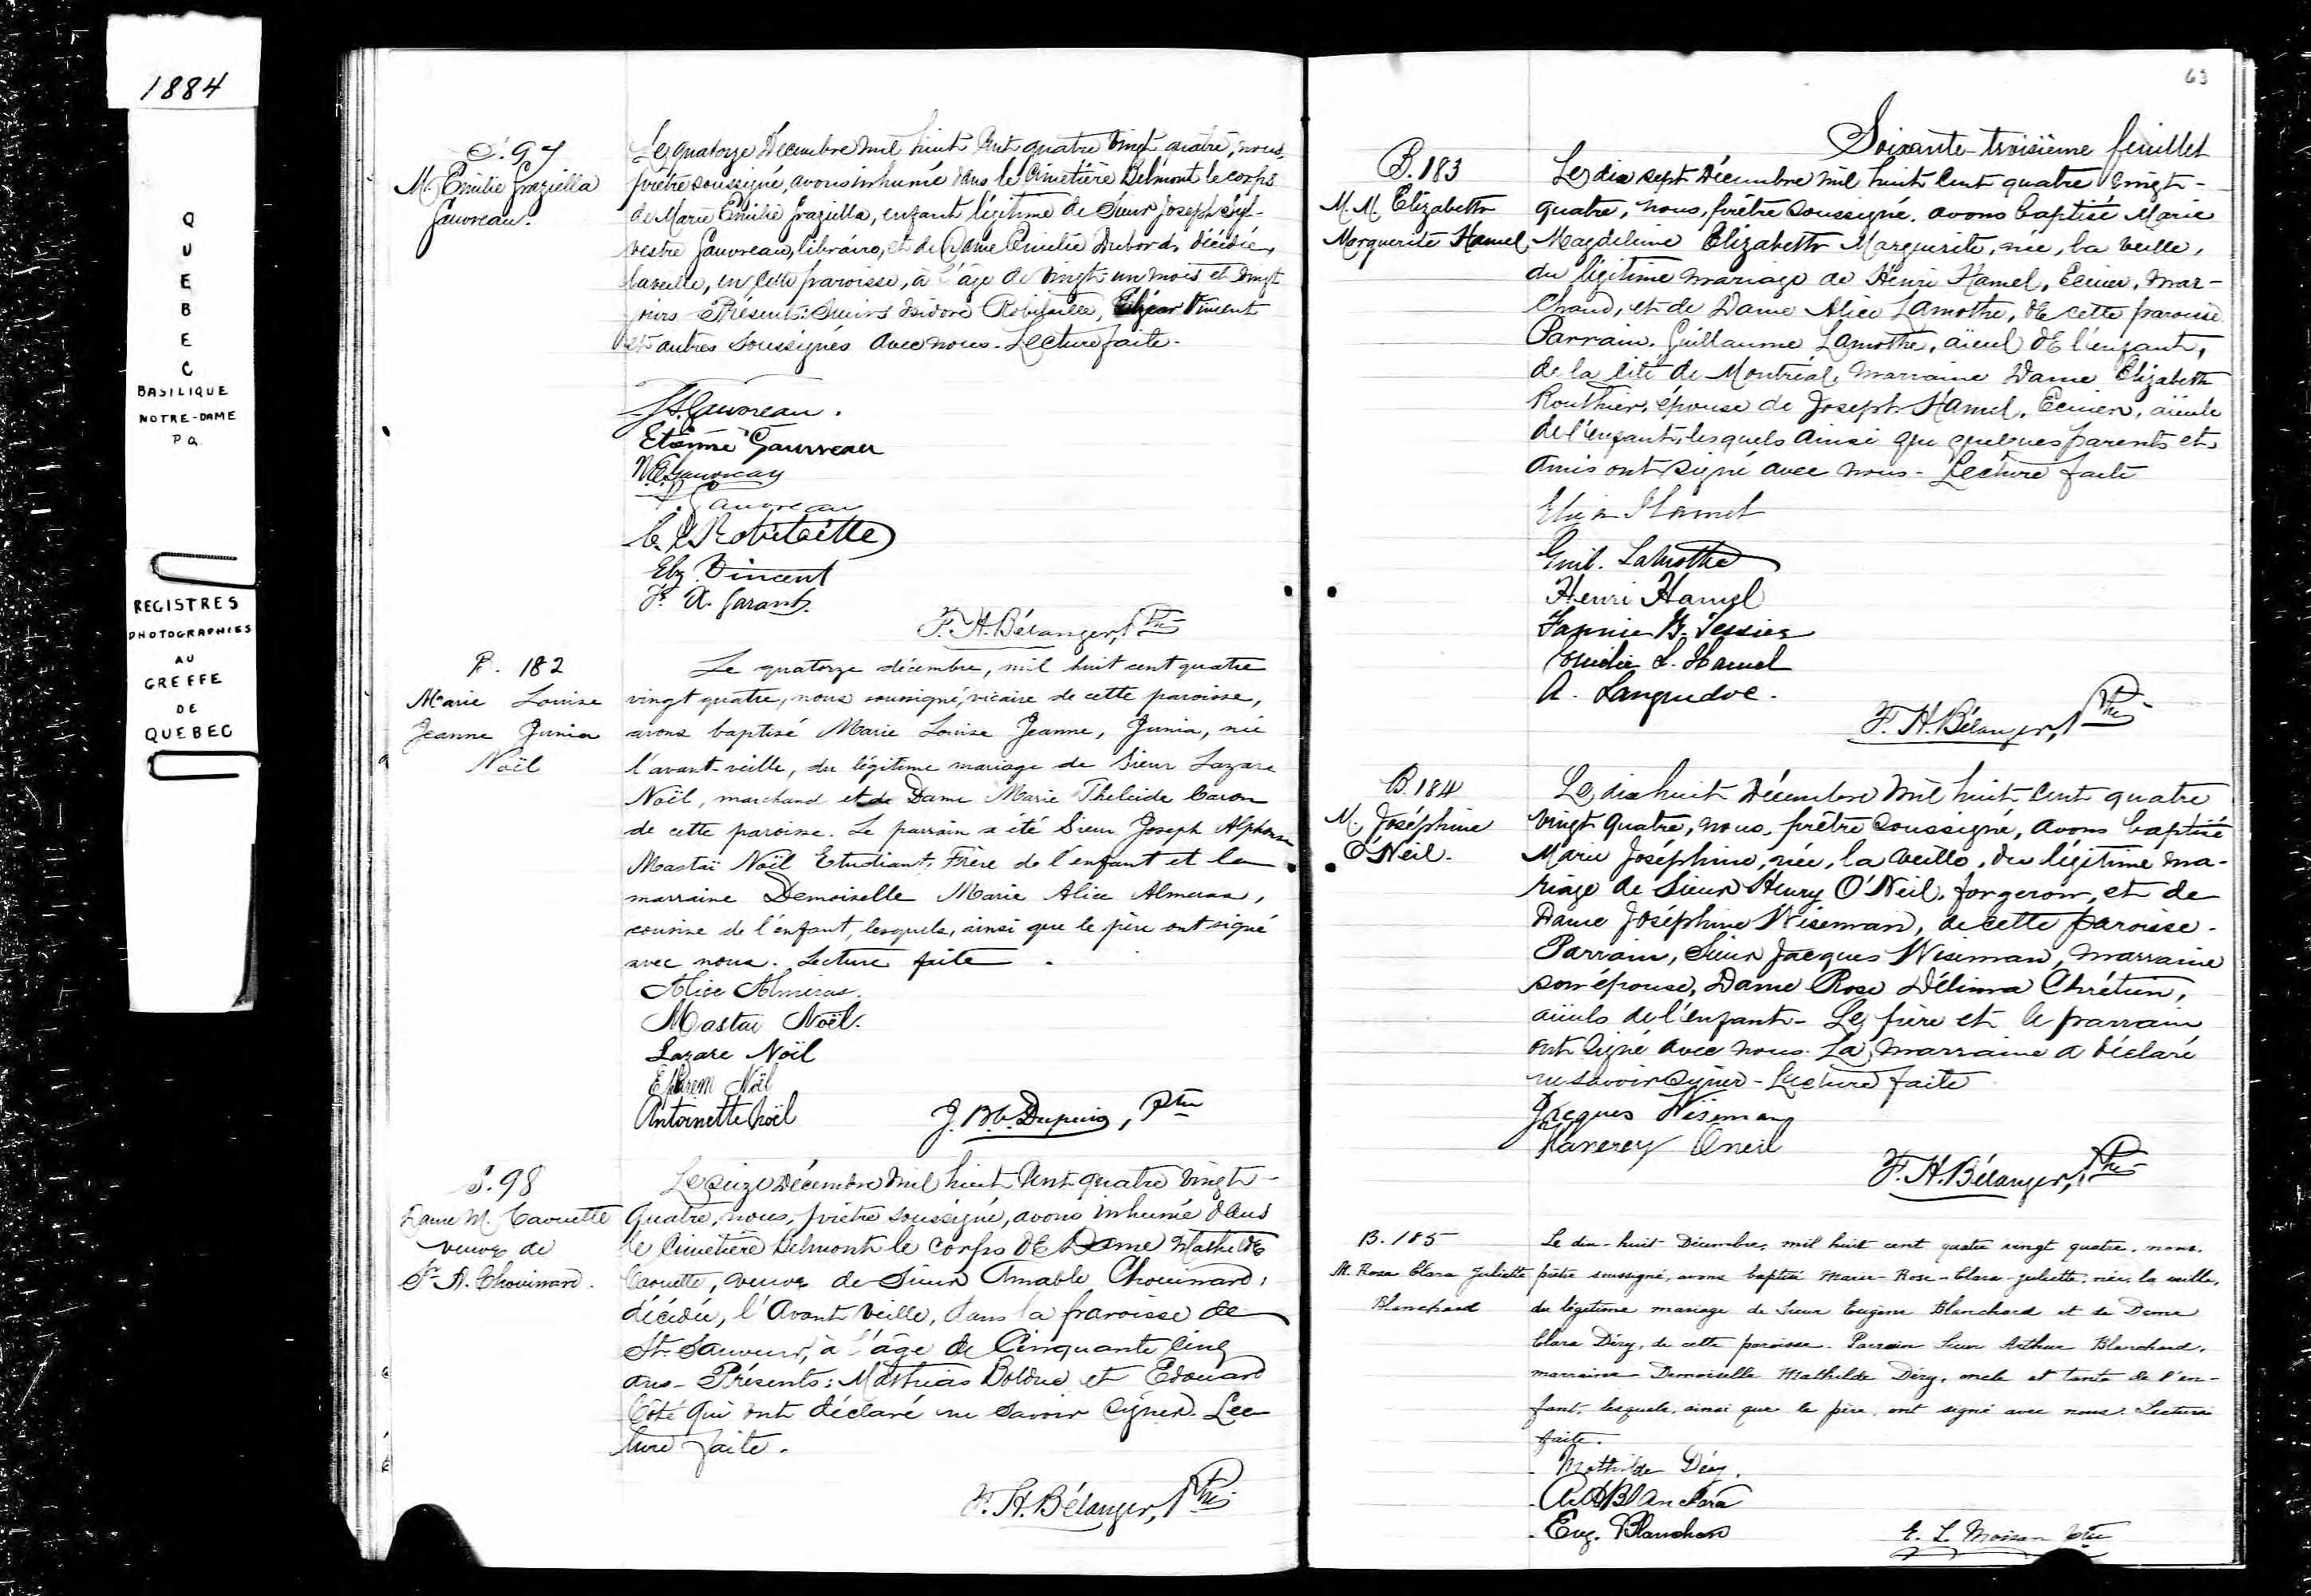 1884
QUEBEC
BASILIQUE
NOTRE-DAME
P.Q.
REGISTRES
PHOTOGRAPHIES
AU
GREFFE
DE
QUEBEC
S. 97
M. Emilie Graziella
Gauvreau.
Le quatorze Décembre mil huit cent quatre vingt quatre, nous,
prêtre soussigné, avons inhumé dans le Cimetière Belmont le corps
de Marie Emilie Graziella, enfant légitime de Sieur Joseph Syl-
vestre Gauvreau, libraire, et de Dame Emilie Dubord, décédée,
la veille, en cette paroisse, à l'âge de vingt-un mois et vingt
jours - Présents: Sieurs Isidore Robitaille, Elzéar Vincent
et autres soussignés avec nous - Lecture faite -
J. S. Gauvreau.
Etienne Gauvreau
N. E. Gauvreau
Gauvreau
Robitaille
Elz. Vincent
F. X. Garant.
F. H. Bélanger, Ptre
B. 182
Marie Louise
Jeanne Junia
Noël
Le quatorze décembre, mil huit cent quatre
vingt quatre, nous soussigné, vicaire de cette paroisse,
avons baptisé Marie Louise Jeanne, Junia, née
l'avant-veille, du légitime mariage de Sieur Lazare
Noël, marchand et de Dame Marie Thelcide Caron
de cette paroisse. Le parrain a été Sieur Joseph Alphonse
Mastaï Noël Etudiant, Frère de l'enfant et la
marraine Demoiselle Marie Alice Almeras,
cousine de l'enfant, lesquels, ainsi que le père ont signé
avec nous. Lecture faite.
Alice Almeras.
Mastaï Noël.
Lazare Noël
Ephrem Noël
Antoinette Noël
J. B. C. Dupuis, Ptre
S. 98
Dame M. Caouette
veuve de
Sr A. Chouinard.
Le seize Décembre mil huit cent quatre vingt-
quatre, nous, prêtre soussigné, avons inhumé dans
le Cimetière Belmont le corps de Dame Mathilde
Caouette, veuve de Sieur Amable Chouinard,
décédée, l'avant veille, dans la paroisse de
St. Sauveur, à l'âge de Cinquante cinq
ans - Présents: Mathias Bolduc et Edouard
Côté qui ont déclaré ne savoir signer. Lec
ture faite.
F. H. Bélanger, Ptre
63
Soixante-troisième feuillet
B. 183
M. M. Elizabeth
Marguerite Hamel
Le dix sept Décembre mil huit cent quatre vingt-
quatre, nous, prêtre soussigné, avons baptisé Marie
Magdeleine Elizabeth Marguerite, née, la veille,
du légitime mariage de Henri Hamel, Ecuier, mar-
chand, et de Dame Alice Lamothe, de cette paroisse
Parrain, Guillaume Lamothe, aïeul de l'enfant,
de la cité de Montréal, marraine Dame Elizabeth
Routhier, épouse de Joseph Hamel, Ecuier, aïeule
de l'enfant, lesquels ainsi que quelques parents et
amis ont signé avec nous - Lecture faite
Hamel
Guil. Lamothe
Henri Hamel
Fannie B. Tessier
L. Hamel
A. Languedoc.
F. H. Bélanger, Ptre
B. 184
M. Joséphine
O'Neil.
Le dix huit Décembre mil huit cent quatre
vingt quatre, nous, prêtre soussigné, avons baptisé
Marie Joséphine, née, la veille, du légitime ma-
riage de Sieur Henry O'Neil, forgeron, et de
Dame Joséphine Wiseman, de cette paroisse.
Parrain, Sieur Jacques Wiseman, marraine
son épouse, Dame Rose Délima Chrétien,
aïeuls de l'enfant - Le père et le parrain
ont signé avec nous. La marraine a déclaré
ne savoir signer - Lecture faite
Jacques Wiseman
Oneil
F. H. Bélanger, Ptre
B. 185
M. Rose Clara Juliette
Blanchard
Le dix-huit Décembre, mil huit cent quatre vingt quatre, nous,
prêtre soussigné, avons baptisé Marie-Rose-Clara-Juliette, née, la veille,
du légitime mariage de Sieur Eugène Blanchard et de Dame
Clara Déry, de cette paroisse. Parrain Sieur Arthur Blanchard,
marraine Demoiselle Mathilde Déry, oncle et tante de l'en-
fant, lesquels, ainsi que le père, ont signé avec nous. Lecture
faite.
Mathilde Déry.
Art Blanchard
Eug. Blanchard
E. L. Moisan Ptre